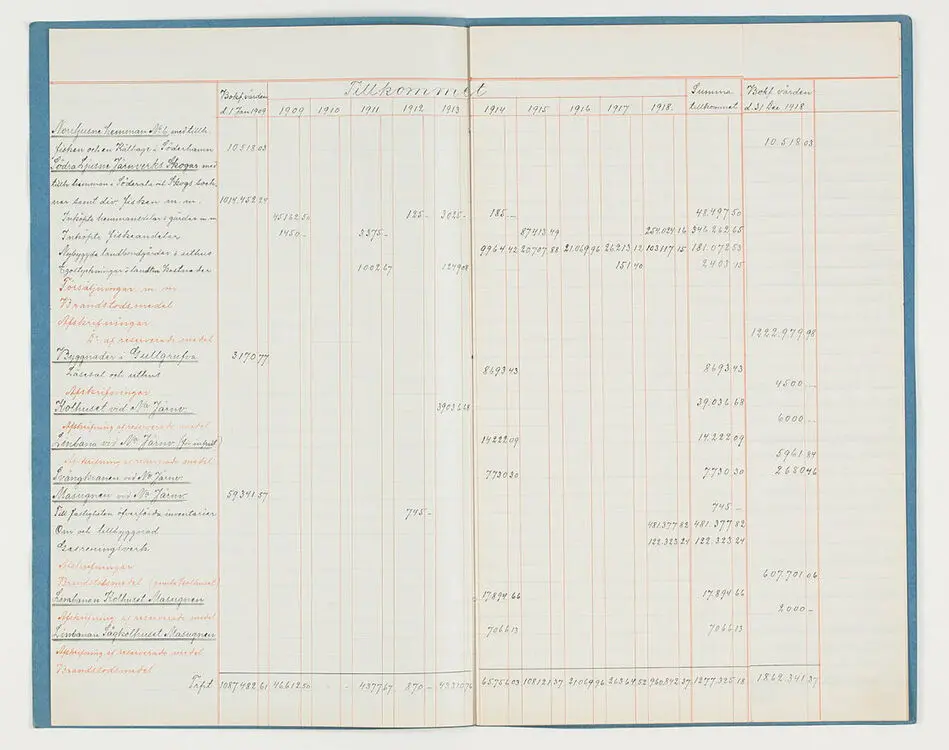 Bokf. värden Tillkommet Summa Bokf. värden
d. 1 Jan 1909 1909 1910 1911 1912 1913 1914 1915 1916 1917 1918 tillkommet d. 31 Dec. 1918
Norrljusne hemman No 6 med tillh.
fisken och en Kålhage i Söderhamn 10.518 03 10.518 03
Södra Ljusne Järnverks Skogar med
tillh. hemman i Söderala och Skogs sock-
nar samt div. fisken m. m. 1014.452 24
Inköpta hemmansdelar o gårdar m. m. 45162 50 125 - 3025 - 185 - 48.497 50
Inköpta fiskeandelar 1450 - 3375 - 87413 49 254.024 16 346.262 65
Nybyggda landtbondgårdar o uthus 9964 42 20.707 88 21.069 96 26.213 12 103.117 15 181.072 53
1002 67 1249 08 151 40 2403 15
Försäljningar m. m.
Brandstodsmedel
Afskrifningar
D:o af reserverade medel 1222.979 98
Byggnader i Gullgrufva 3170 77
Läsesal och uthus 8693 43 8693 43
Afskrifningar 4500 -
Kolhuset vid Na Järnv. 39036 68 39.036 68
Afskrifning af reserverade medel 6000 -
Linbana vid Na Järnv. 14222 09 14.222 09
Afskrifning af reserverade medel 5961 84
Svängkranen vid Na Järnv. 7730 30 7730 30 2680 46
Masugnen vid Na Järnv. 59.341 57
Till fastigheten öfverförda inventarier 745 - 745 -
Om och tillbyggnad 481.377 82 481.377 82
Gasreningsverk 122.323 24 122.323 24
Afskrifningar
Brandstodsmedel 607.701 06
Linbanan Kolhuset Masugnen 17894 66 17.894 66
Afskrifning af reserverade medel 2000 -
Linbanan Sågkolhuset Masugnen 7066 13 7066 13
Afskrifning af reserverade medel
Brandstodsmedel
Trpt 1087.482 61 46612 50 - - 4377 67 870 - 43310 76 65756 03 108121 37 21069 96 26364 52 960842 37 1277.325 18 1862.341 37